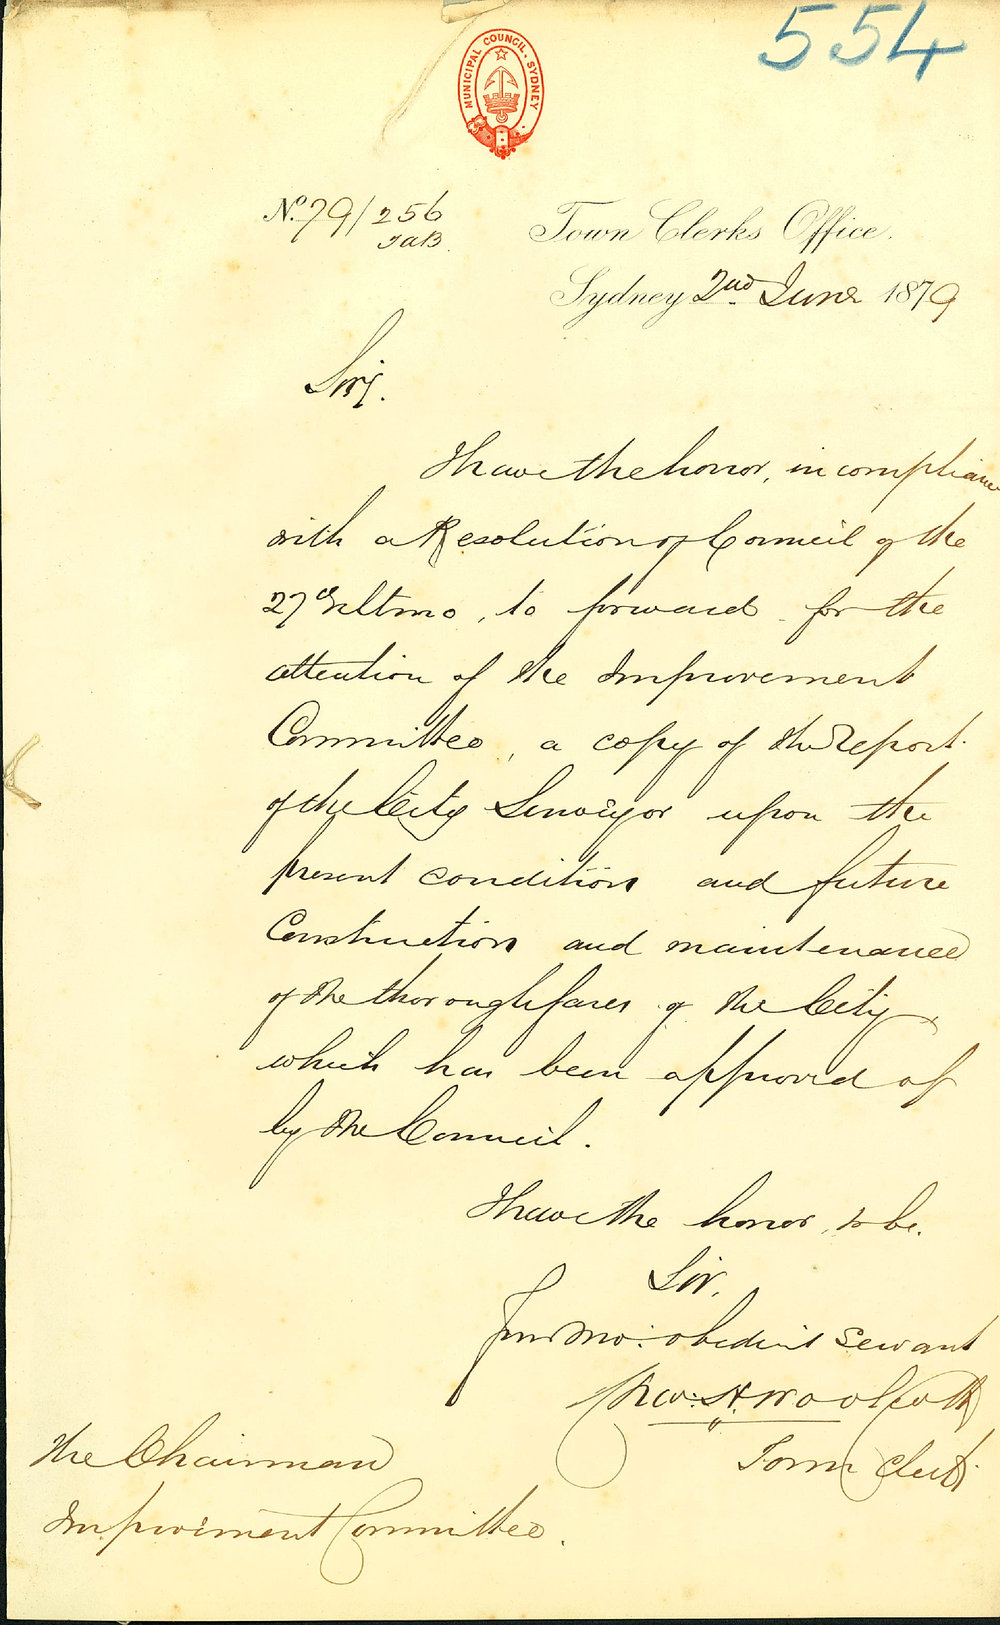 554
MUNICIPAL COUNCIL. SYDNEY
No. 79/256
Town Clerks Office.
Sydney 2nd June 1879
Sir,
I have the honor, in compliance
with a Resolution of Council of the
27th Ultimo, to forward for the
attention of the Improvement
Committee, a copy of the Report
of the City Surveyor upon the
present condition and future
Construction and maintenance
of the thoroughfares of the City,
which has been approved of
by the Council.
I have the honor, to be.
Sir,
Your Mo: obedient Servant
Chas: H. Woolcott
Town Clerk.
The Chairman
Improvement Committee.